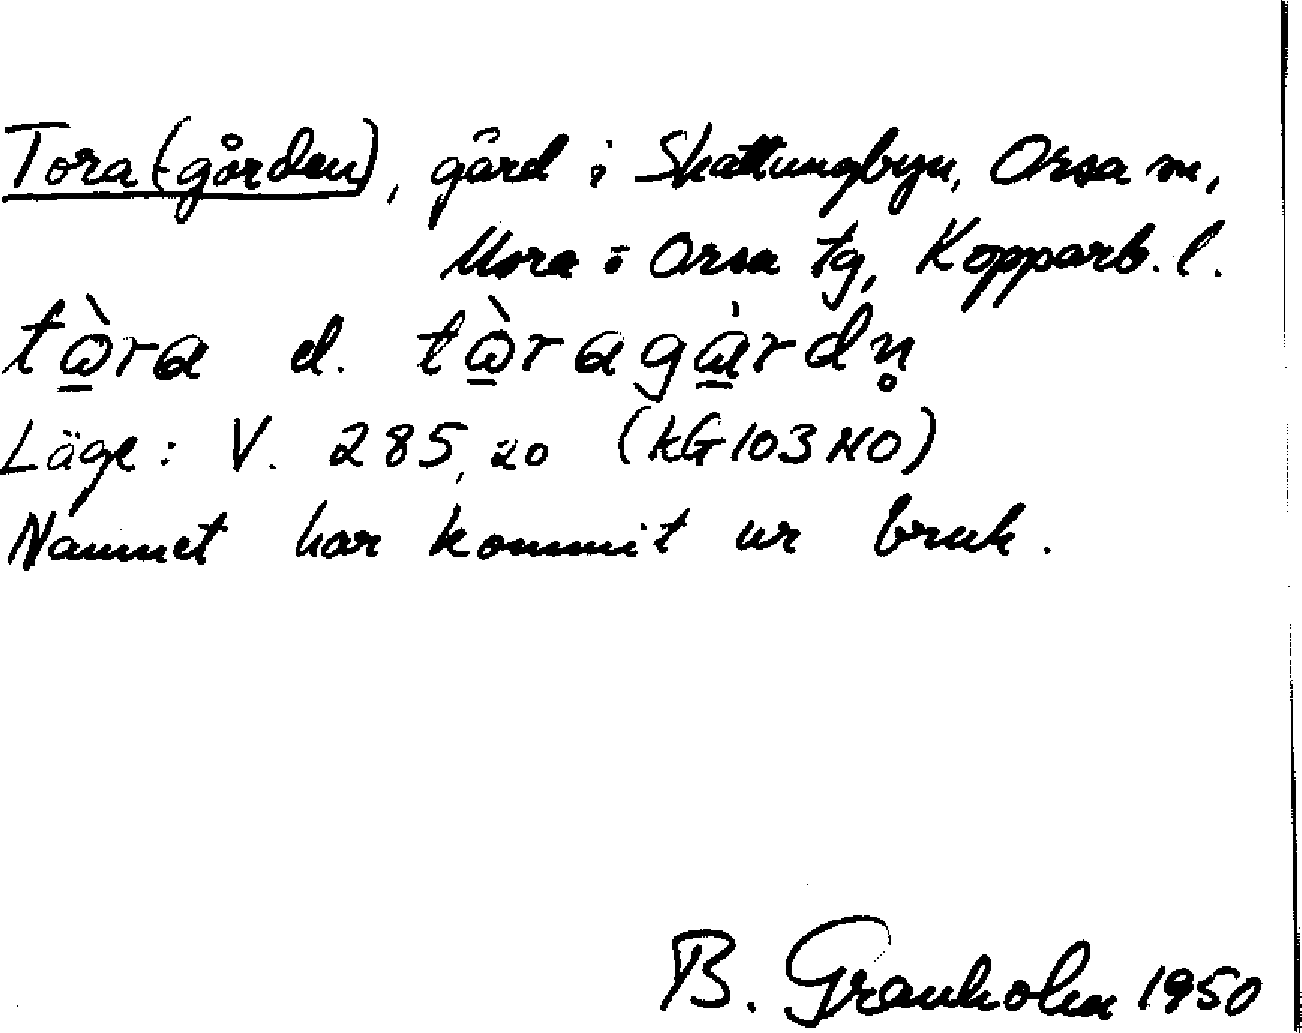 Tora(-gården), gård i Skattungbyn, Orsa sn,
Mora o Orsa tg, Kopparb. l.
tὼ̲ra el. tὼ̲ragὼ̲rdn̥
Läge: V. 285,20 (kG103NO)
Namnet har kommit ur bruk.
B. Granholm 1950